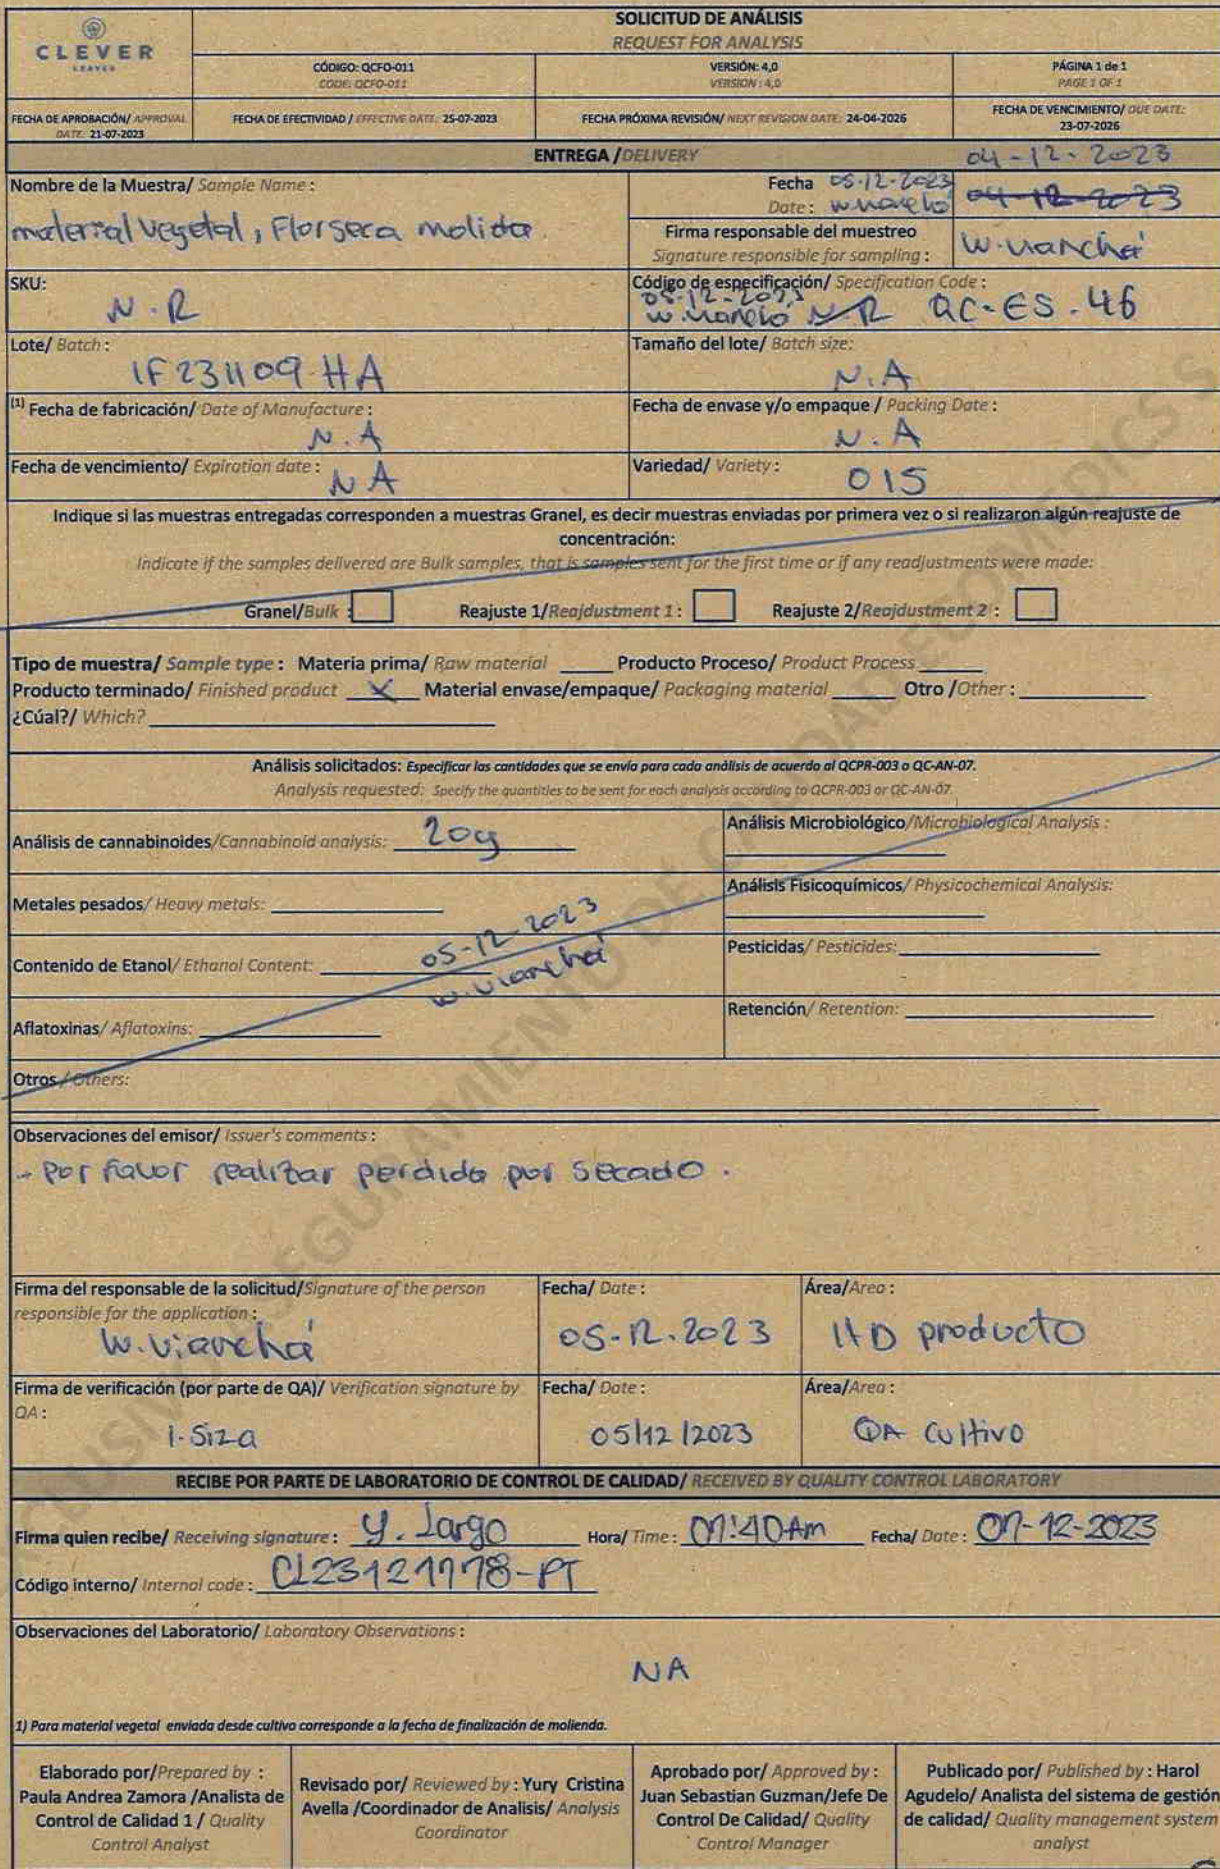 CLEVER
LEAVES
SOLICITUD DE ANÁLISIS
REQUEST FOR ANALYSIS
CÓDIGO: QCFO-011
CODE: QCFO-011
VERSIÓN: 4,0
VERSION : 4,0
PÁGINA 1 de 1
PAGE 1 OF 1
FECHA DE APROBACIÓN/ APPROVAL
DATE: 21-07-2023
FECHA DE EFECTIVIDAD / EFFECTIVE DATE: 25-07-2023
FECHA PRÓXIMA REVISIÓN/ NEXT REVISION DATE: 24-04-2026
FECHA DE VENCIMIENTO/ DUE DATE:
23-07-2026
ENTREGA /DELIVERY
04-12-2023
Nombre de la Muestra/ Sample Name :
material vegetal, Flor seca molida
Fecha 05-12-2023
Date :
04-12-2023
Firma responsable del muestreo
Signature responsible for sampling :
W. Vianchá
SKU:
N.R
Código de especificación/ Specification Code :
05-12-2023
NR QC-ES-46
Lote/ Batch :
1F231109HA
Tamaño del lote/ Batch size:
N.A
(1) Fecha de fabricación/ Date of Manufacture :
N.A
Fecha de envase y/o empaque / Packing Date :
N.A
Fecha de vencimiento/ Expiration date :
NA
Variedad/ Variety :
015
Indique si las muestras entregadas corresponden a muestras Granel, es decir muestras enviadas por primera vez o si realizaron algún reajuste de
concentración:
Indicate if the samples delivered are Bulk samples, that is samples sent for the first time or if any readjustments were made:
Granel/Bulk : Reajuste 1/Reajdustment 1 : Reajuste 2/Reajdustment 2 :
Tipo de muestra/ Sample type : Materia prima/ Raw material ____ Producto Proceso/ Product Process ____
Producto terminado/ Finished product X Material envase/empaque/ Packaging material ____ Otro /Other : ____
¿Cúal?/ Which? ____
Análisis solicitados: Especificar las cantidades que se envía para cada análisis de acuerdo al QCPR-003 o QC-AN-07.
Analysis requested: Specify the quantities to be sent for each analysis according to QCPR-003 or QC-AN-07.
Análisis de cannabinoides/Cannabinoid analysis: 20g
Análisis Microbiológico/Microbiological Analysis :
Metales pesados/ Heavy metals:
Análisis Fisicoquímicos/ Physicochemical Analysis:
Contenido de Etanol/ Ethanol Content:
05-12-2023
W. Vianchá
Pesticidas/ Pesticides:
Aflatoxinas/ Aflatoxins:
Retención/ Retention:
Otros / Others:
Observaciones del emisor/ Issuer's comments :
- Por favor realizar perdida por secado.
Firma del responsable de la solicitud/Signature of the person
responsible for the application :
W. Vianchá
Fecha/ Date :
05-12-2023
Área/Area :
I+D producto
Firma de verificación (por parte de QA)/ Verification signature by
QA :
I. Siza
Fecha/ Date :
05/12/2023
Área/Area :
QA Cultivo
RECIBE POR PARTE DE LABORATORIO DE CONTROL DE CALIDAD/ RECEIVED BY QUALITY CONTROL LABORATORY
Firma quien recibe/ Receiving signature : Y. Largo Hora/ Time : 07:40 Am Fecha/ Date : 07-12-2023
Código interno/ Internal code : CL23121778-PT
Observaciones del Laboratorio/ Laboratory Observations :
NA
1) Para material vegetal enviada desde cultivo corresponde a la fecha de finalización de molienda.
Elaborado por/Prepared by :
Paula Andrea Zamora /Analista de
Control de Calidad 1 / Quality
Control Analyst
Revisado por/ Reviewed by : Yury Cristina
Avella /Coordinador de Analisis/ Analysis
Coordinator
Aprobado por/ Approved by :
Juan Sebastian Guzman/Jefe De
Control De Calidad/ Quality
Control Manager
Publicado por/ Published by : Harol
Agudelo/ Analista del sistema de gestión
de calidad/ Quality management system
analyst